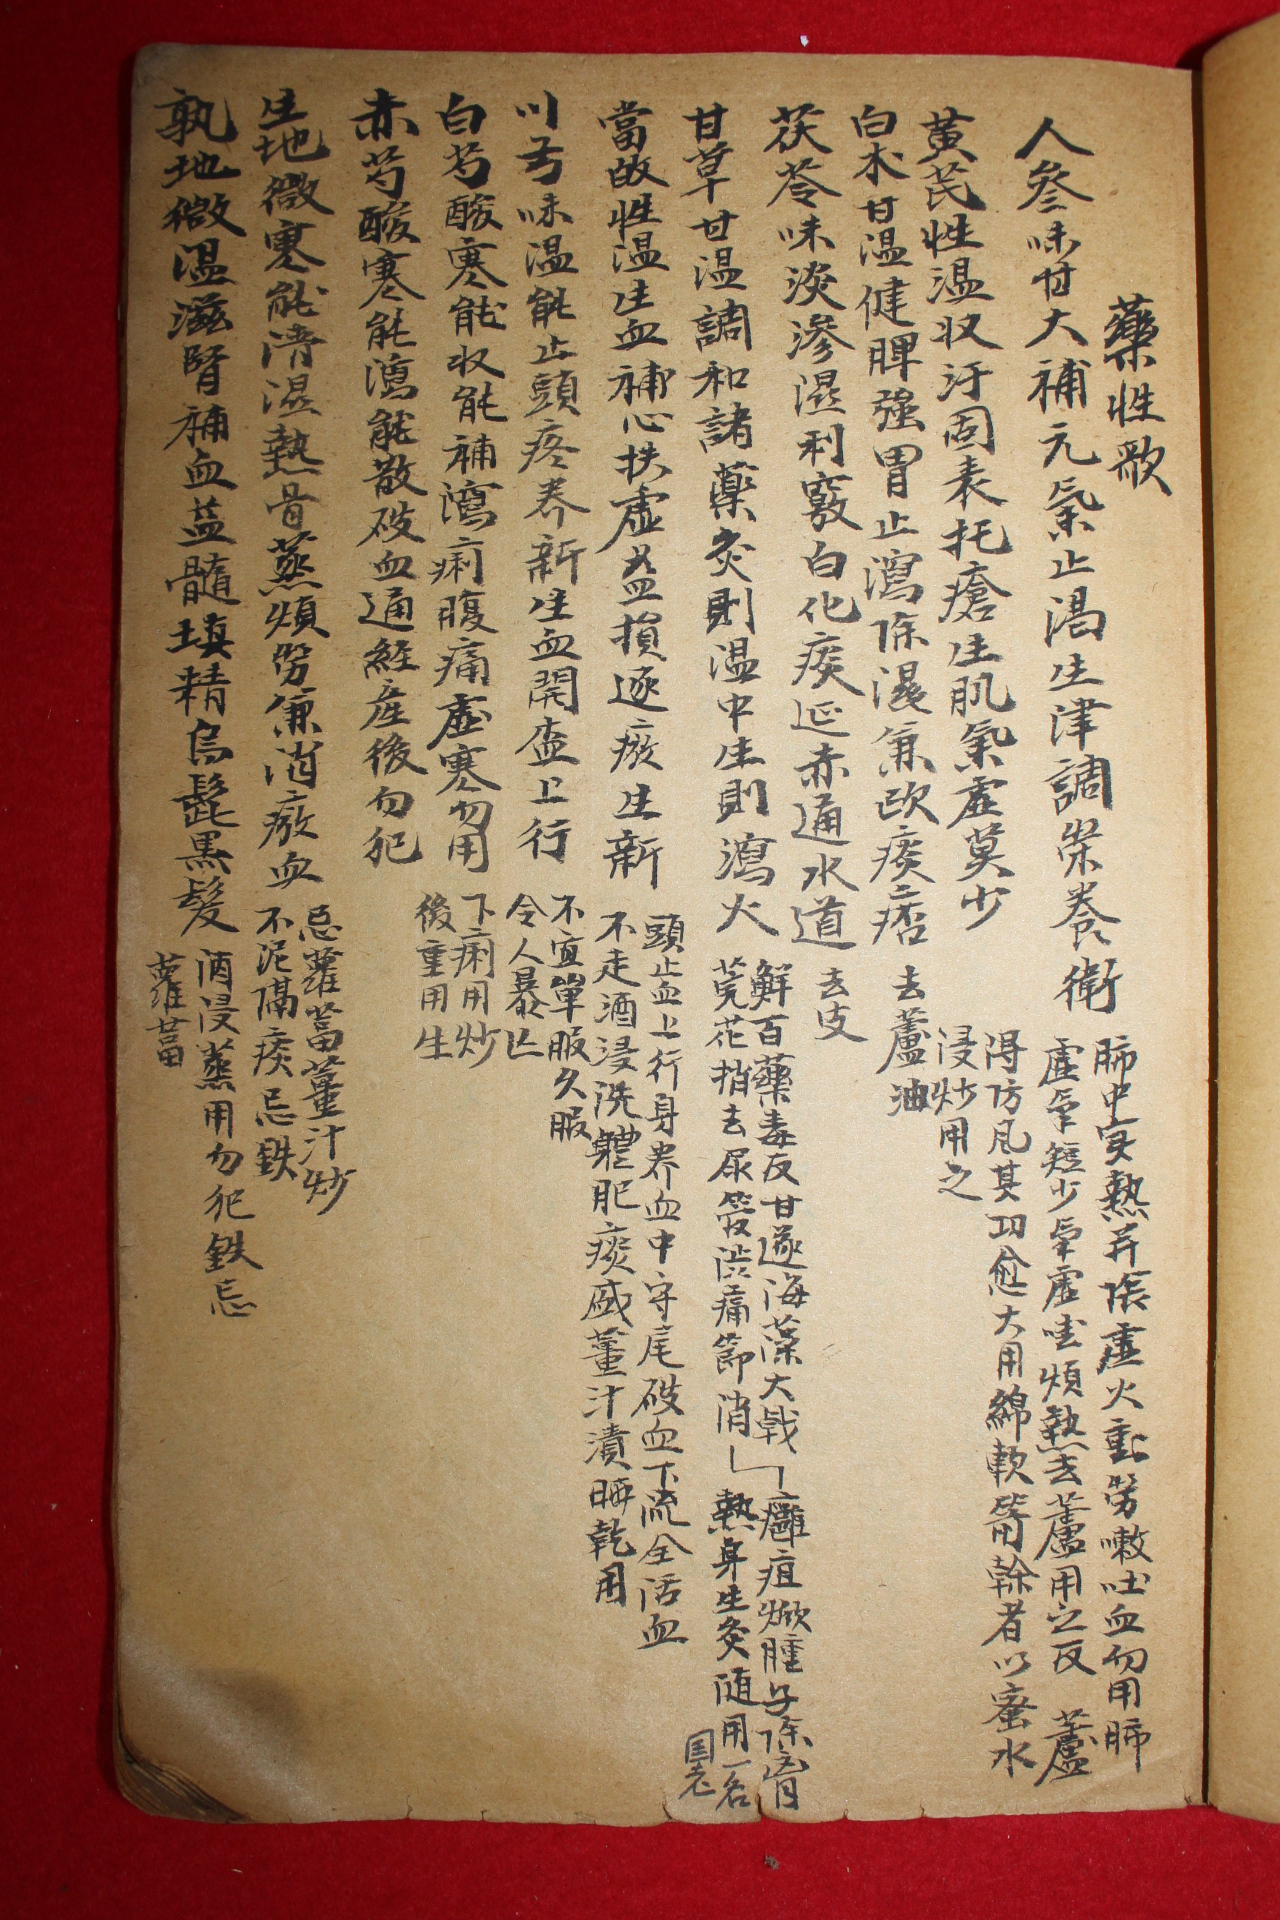 藥性歌
人參味甘大補元氣止渴生津調榮養衛
肺中实熱并陰虛火動勞嗽吐血勿用肺
虛气短少气虛喘煩熱去蘆用之反 蘆
黃芪性温収汗固表托瘡生肌氣虛莫少
淂防風其功愈大用綿軟箭幹者以蜜水
浸炒用之
白朮甘温健脾強胃止瀉除濕兼敺痰痞
去蘆油
茯苓味淡滲濕利竅白化痰涎赤通水道
去皮
甘草甘温調和諸藥炙則温中生則瀉火
解百藥毒反甘遂海藻大戟 癰疽焮腫子除胷
莞花梢去尿管澁痛節消 熱身生炙随用一名
国老
當敀性温生血補心扶虛益損逐瘀生新
頭止血上行身养血中守尾破血下流全活血
不走酒浸洗體肥痰盛薑汁漬晒乾用
川芎味温能止頭疼养新生血開盃上行
不宜單服久服
令人暴亡
白芍酸寒能収能補瀉痢腹痛虛寒勿用
下痢用炒
後重用生
赤芍酸寒能瀉能散破血通経産後勿犯
生地微寒能清湿熱骨蒸煩勞兼消瘀血
忌蘿葍薑汁炒
不泥隔痰忌鉄
孰地微温滋腎補血益髓填精烏髭黒髮
酒浸蒸用勿犯鉄忌
蘿葍